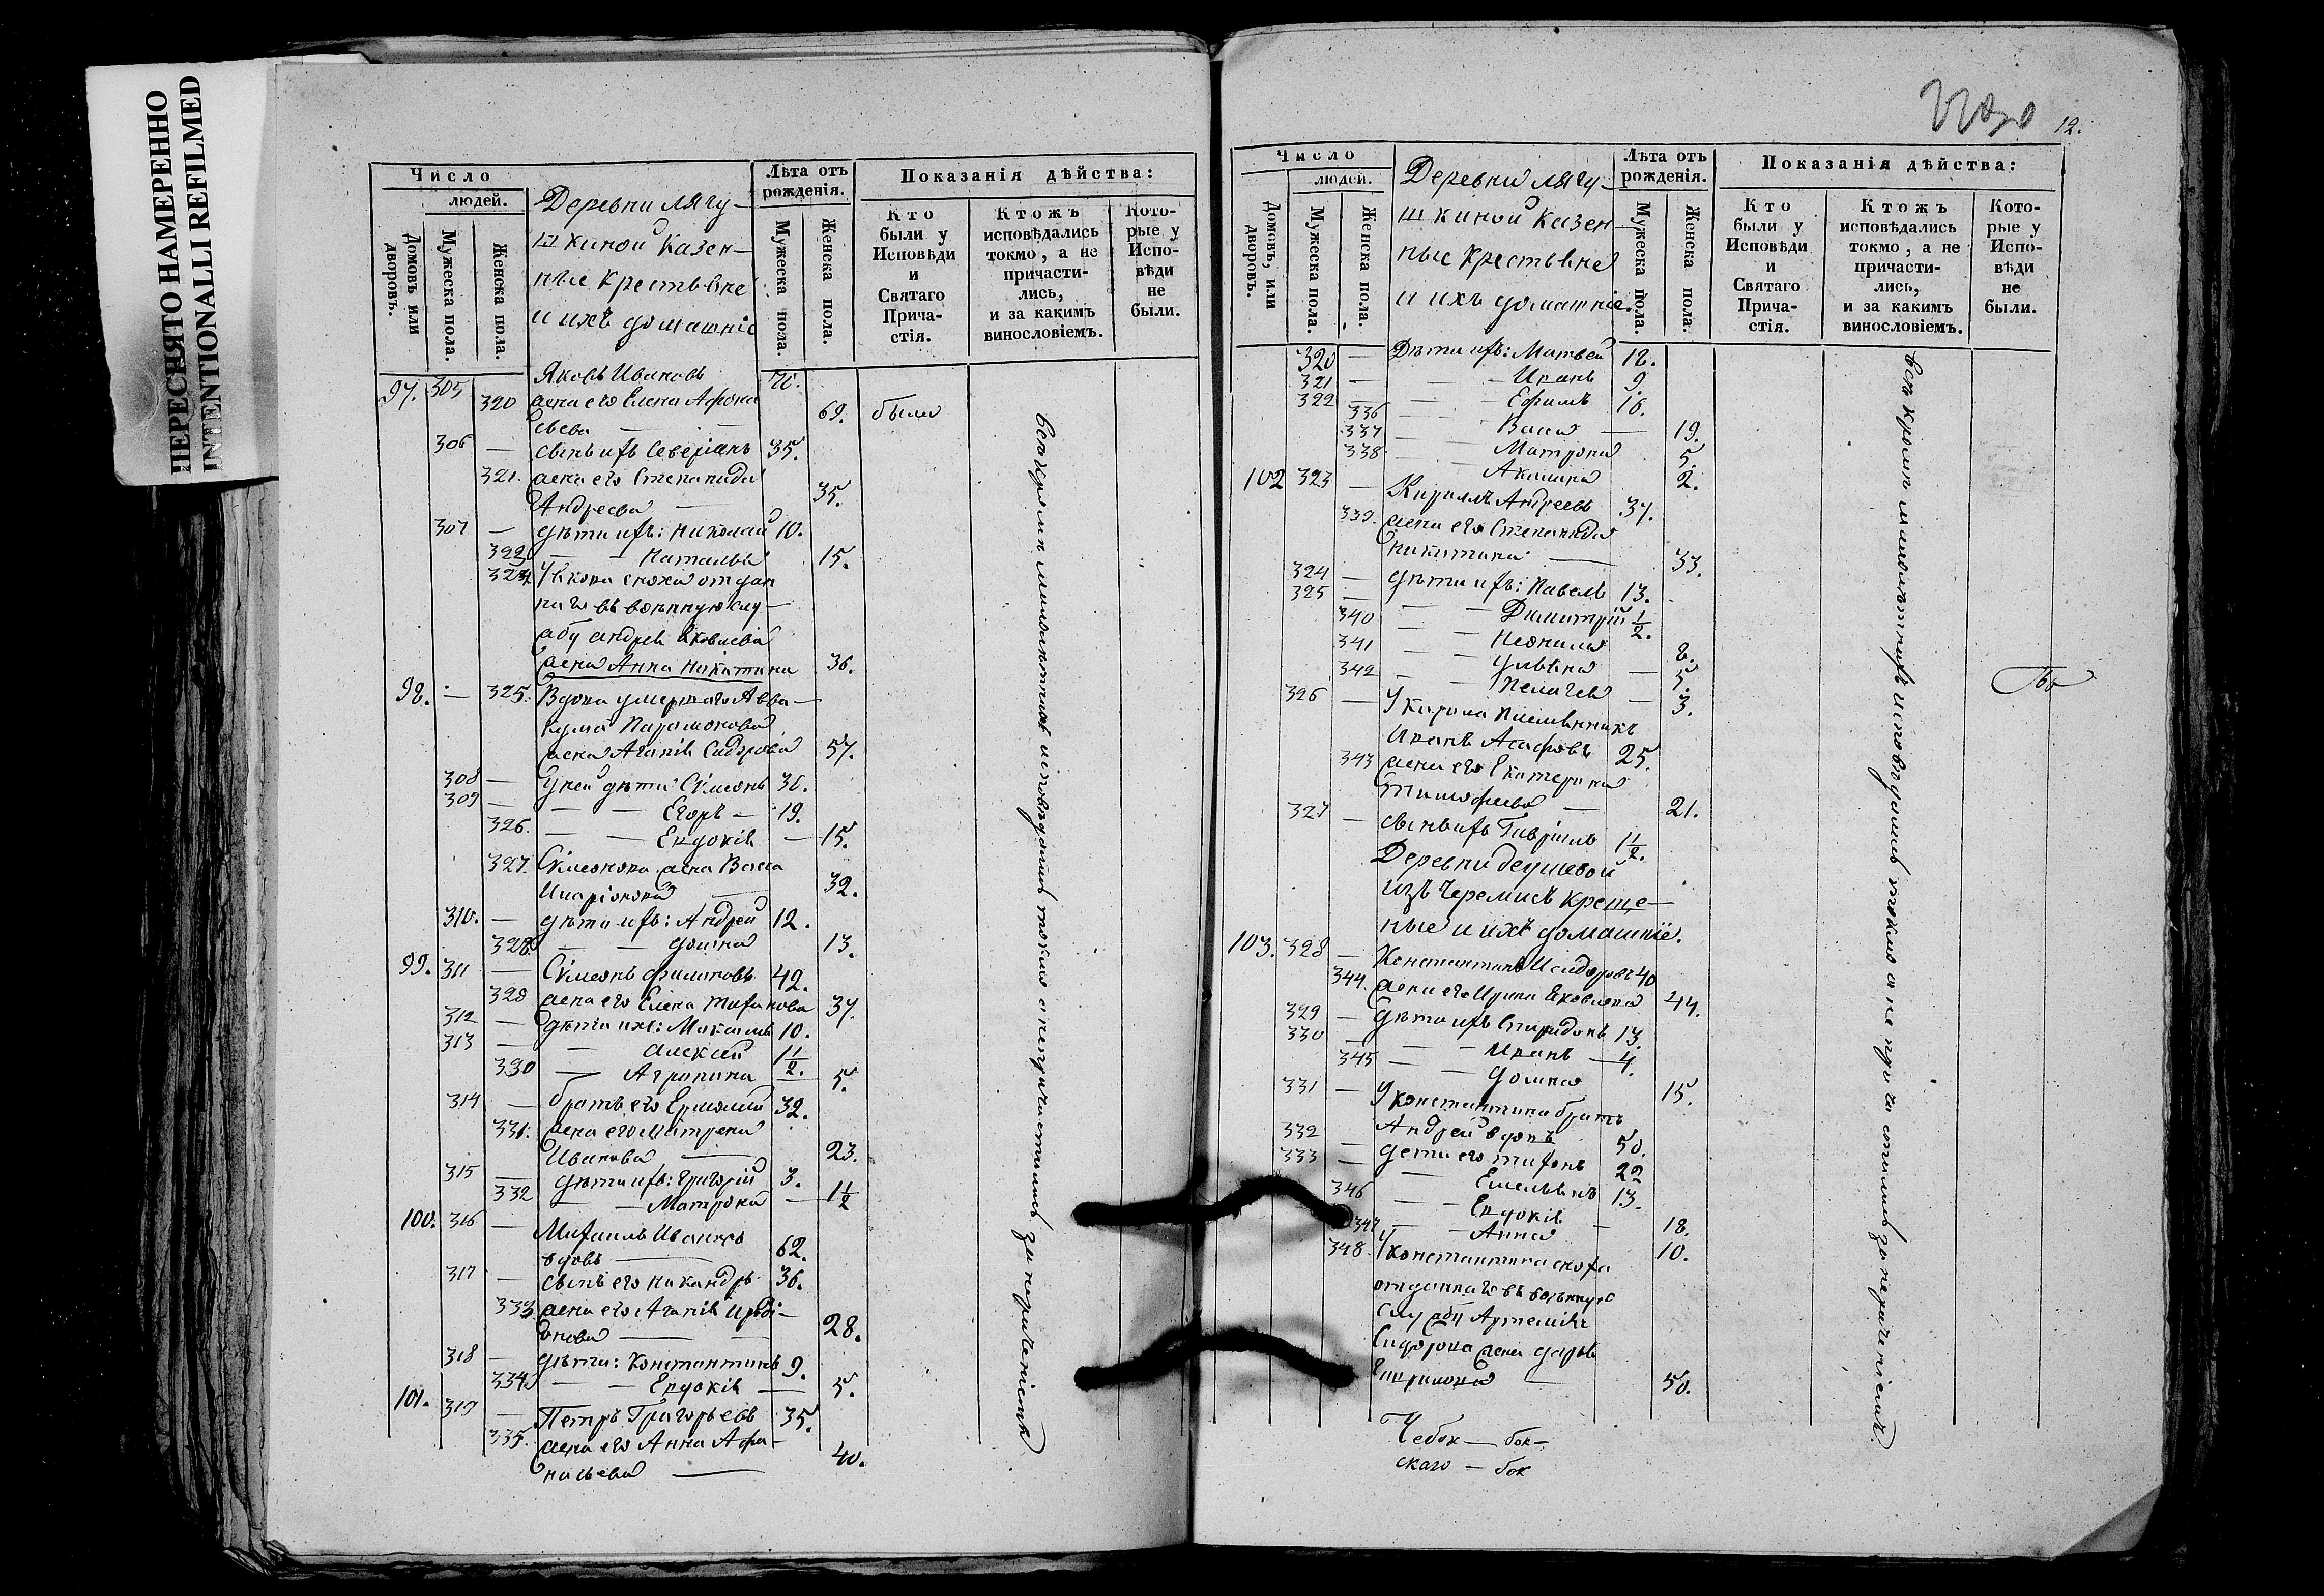 ПЕРЕСНЯТО НАМЕРЕННО
INTENTIONALLI REFILMED
Число
людей.
Домовъ или дворовъ.
Мужеска пола.
Женска пола.
Деревни Лягу-
шкиной Казен-
ные Крестьяне
и ихъ домашніе
Лѣта отъ рожденія.
Мужеска пола.
Женска пола.
Показанія дѣйства:
Кто были у Исповѣди и Святаго Прича-стія.
Ктожъ исповѣдались токмо, а не причасти-лись, и за какимъ винословіемъ.
Кото-рые у Испо-вѣди не были.
97. 305 Яковъ Ивановъ 70.
320 жена его Елена Афона
сьева 69. были
306 — сынъ ихъ Северіанъ 35.
321. жена его Степанида
Андреева — 35.
307 — дѣти ихъ: Николай 10.
322 — — Наталья 15.
324 Якова сноха отдан
наго въ военную слу-
жбу Андрея Яковлева
жена Анна Никитина 36.
98. — 325. Вдова умершаго Авва-
кума Парамонова
жена Агапія Сидорова 57.
308 — У ней дѣти Сѵмеонъ 36.
309 — — — Егоръ — 19.
326. — — Евдокія — 15.
327. Сѵмеонова жена Васса
Иларіонова — 32.
310. — дѣти ихъ: Андрей 12.
328. — — Домна 13.
99. 311 — Сѵмеонъ Филиповъ 42.
329 жена его Елена Тихонова 37.
312 — дѣти ихъ: Максимъ 10.
313 — — Алексей 1 1/2.
330 — Агрипина — 5.
314 — братъ его Ермолай 32.
331. жена его Матрена
Иванова — 23.
315 — дѣти ихъ: Григорій 3.
332 — — Матрона — 1 1/2
100. 316 — Михаилъ Ивановъ
вдовъ — 62.
317 — сынъ его Никандръ 36.
333 жена его Агапія Ираді-
онова — 28.
318 — дѣти: Константинъ 9.
334 — — Евдокія — 5.
101. 319 — Петръ Григорьевъ 35.
335. жена его Анна Афа-
насьева — 40.
всѣ кромѣ малолѣтнихъ исповѣдались токмо а не причастились за нераченіемъ
12.
Число
людей.
Домовъ, или дворовъ.
Мужеска пола.
Женска пола.
Деревни Лягу-
шкиной Казен
ные Крестьяне
и ихъ домашніе.
Лѣта отъ рожденія.
Мужеска пола.
Женска пола.
Показанія дѣйства:
Кто были у Исповѣди и Святаго Прича-стія.
Ктожъ исповѣдались токмо, а не причасти-лись, и за какимъ винословіемъ.
Кото-рые у Испо-вѣди не были.
320 — Дѣти ихъ: Матвей 12.
321 — — — Иванъ 9.
322 — — — Ефимъ 16.
336 — — Васса — 19.
337 — — Матрона 5.
338 — — Акилина 2.
102 323 — Кирилъ Андреевъ 37.
339. жена его Степанида
Никитина — 33.
324 — дѣти ихъ: Павелъ 13.
325 — — — Димитрій 1/2.
340 — — Неонила 8.
341 — — Ульяна 5.
342 — — Пелагея — 3.
326 — У Кирила племянникъ
Иванъ Асафовъ 25.
343 жена его Екатерина
Тимофеева — 21.
327 — сынъ ихъ Гавріилъ 1 1/2.
Деревни Деушевой
изъ Черемисъ Креще-
ные и ихъ домашніе.
103. 328 — Константинъ Исидоровъ 40
344. жена его Ирина Яковлева 44.
329 — дѣти ихъ Спиридонъ 13.
330 — — — Иванъ — 4.
345 — — Домна 15.
331 — У Константина братъ
Андрей вдовъ 50.
332 — дети его Тихонъ 22
333 — — Емельянъ 13.
346 — — Евдокія — 18.
347 — — Анна 10.
348 У Константина сноха
отданнаго въ военную
службу Артемія
Сидорова жена Дарья
50.
всѣ кромѣ малолѣтнихъ исповѣдались токмо а не причастились за нераченіемъ.
Чебок — бок-
скаго — бок